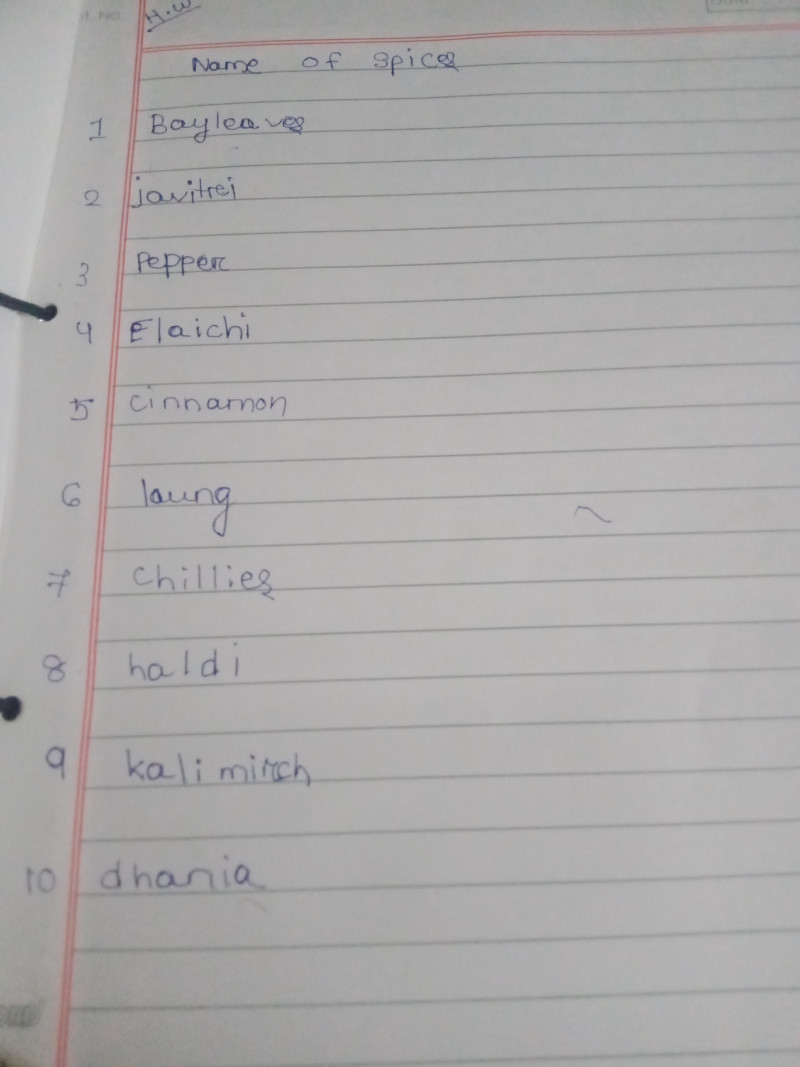 H.W
Name of spices
1 Bayleaves
2 javitrei
3 Pepper
4 Elaichi
5 cinnamon
6 laung
7 chillies
8 haldi
9 kali mirch
10 dhania